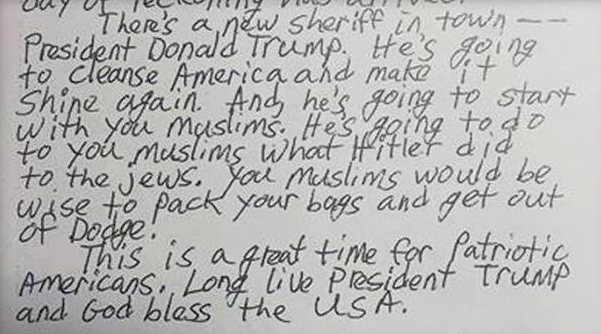 day of reckoning has arrived.
There's a new sheriff in town --
President Donald Trump. He's going
to cleanse America and make it
shine again. And, he's going to start
with you muslims. He's going to do
to you muslims what Hitler did
to the jews. You muslims would be
wise to pack your bags and get out
of Dodge.
This is a great time for Patriotic
Americans. Long live President Trump
and God bless the USA.